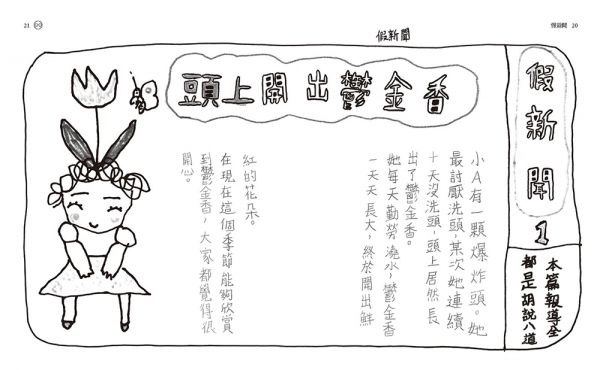 21
假新聞 20
假新聞
假新聞1
本篇報導全
都是胡說八道
頭上開出鬱金香
小A有一顆爆炸頭。她
最討厭洗頭,某次她連續
十天沒洗頭,頭上居然長
出了鬱金香。
她每天勤勞澆水,鬱金香
一天天長大,終於開出鮮
紅的花朵。
在現在這個季節能夠欣賞
到鬱金香,大家都覺得很
開心。